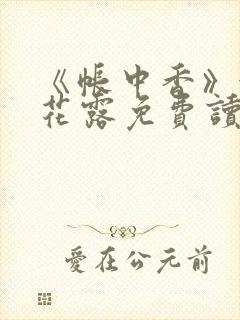 《帳中香》
花露免費讀
愛在公元前